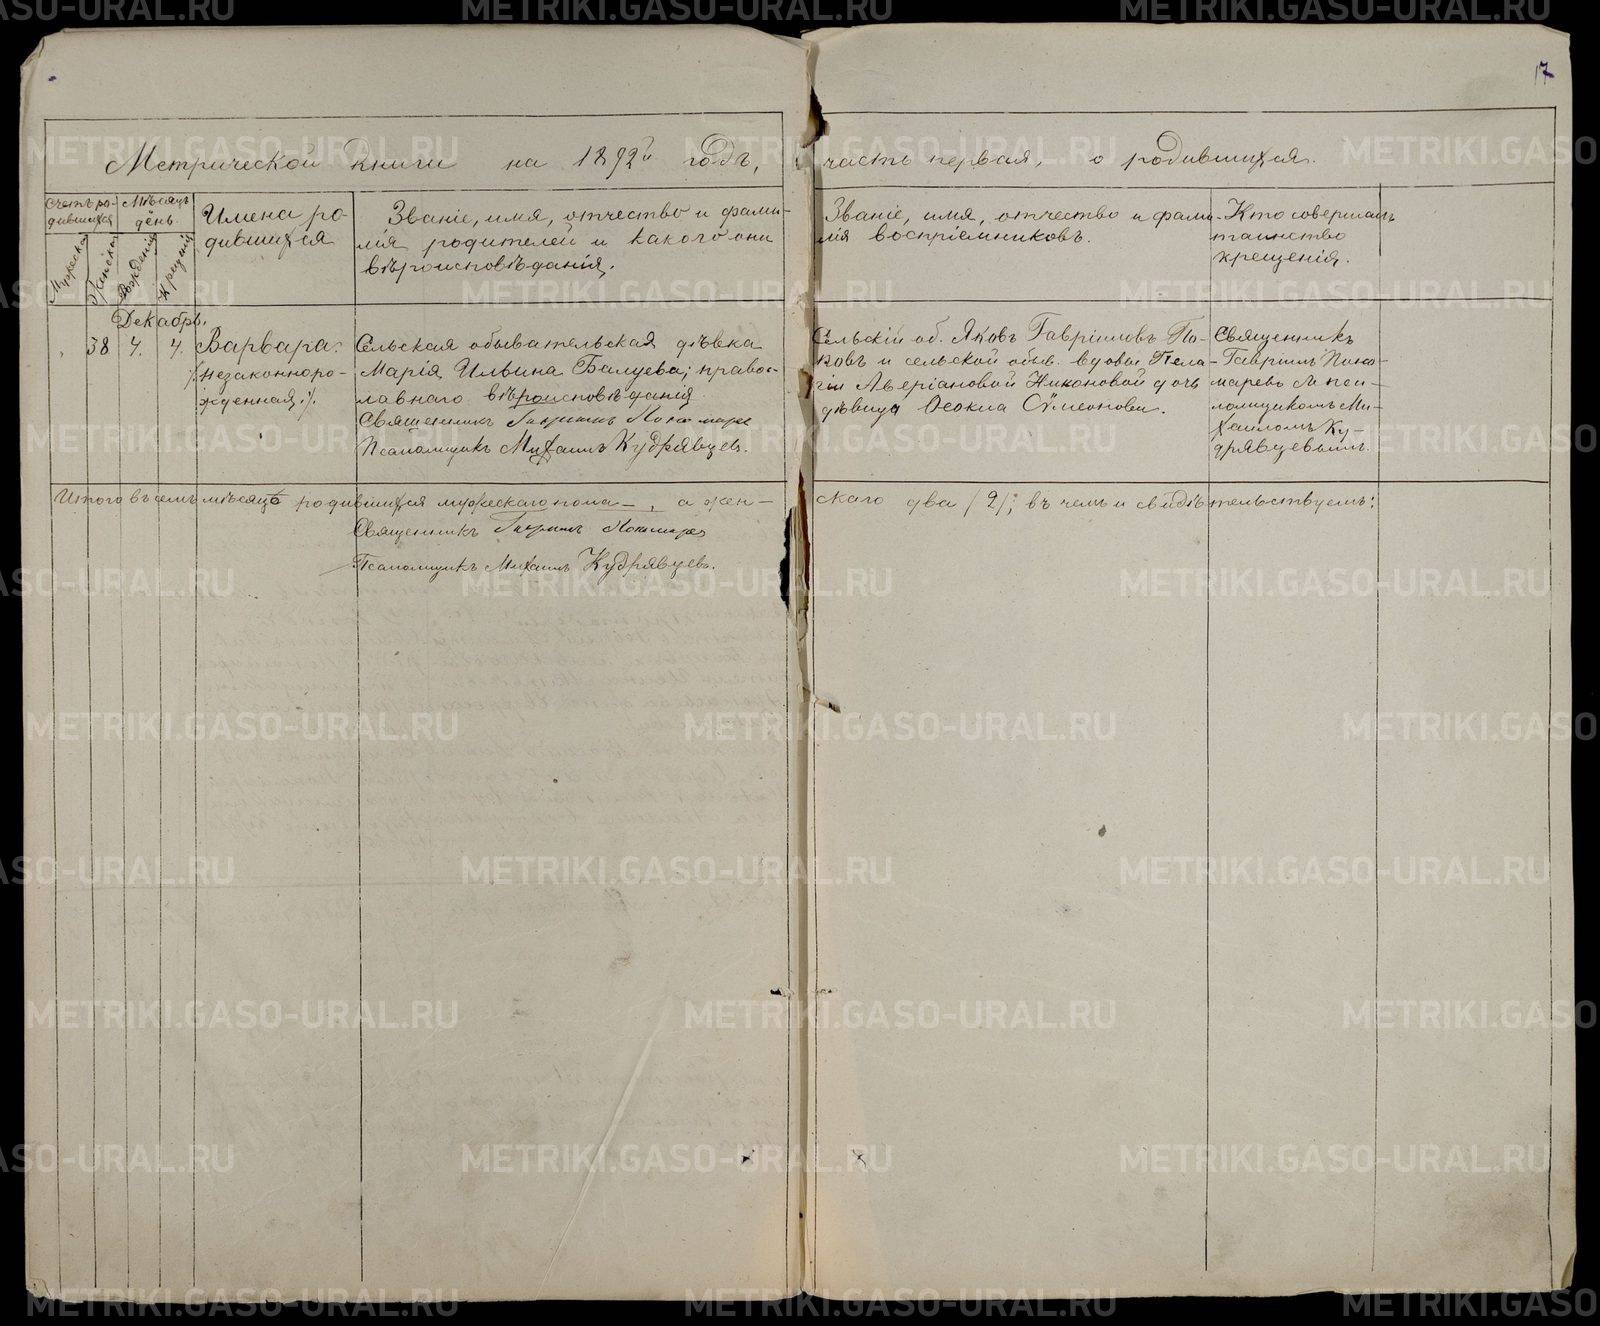 17
Метрической книги на 1892й годъ, часть первая, о родившихся.
Счетъ ро-
дившихся
Мѣсяцъ
день.
Мужеска
Женска
Рожденія
Крещенія
Имена ро-
дившихся
Званіе, имя, отчество и фами-
лія родителей и какого они
вѣроисповѣданія.
Званіе, имя, отчество и фами-
лія воспріемниковъ.
Кто совершалъ
таинство
крещенія.
Декабрь.
38 4. 4.
Варвара.
/:незаконноро-
жденная:/.
Сельская обывательская дѣвка
Марія Ильина Балуева; правос-
лавнаго вѣроисповѣданія
Священникъ Гавріилъ Пономарев
Псаломщикъ Михаилъ Кудрявцевъ.
Сельскій об. Яковъ Гавріиловъ По-
ковъ и сельской обыв. вдовы Пела-
гіи Аверіановой Никоновой дочь
дѣвица Ѳеокла Сѷмеонова.
Священникъ
Гавріилъ Поно-
маревъ съ пса-
ломщикомъ Ми-
хаиломъ Ку-
дрявцевымъ.
Итого въ семъ мѣсяцѣ родившихся мужескаго пола — , а жен-скаго два /2/; въ чемъ и свидѣтельствуемъ:
Священникъ Гавріилъ Пономарев
Псаломщикъ Михаилъ Кудрявцевъ.
METRIKI.GASO-URAL.RU